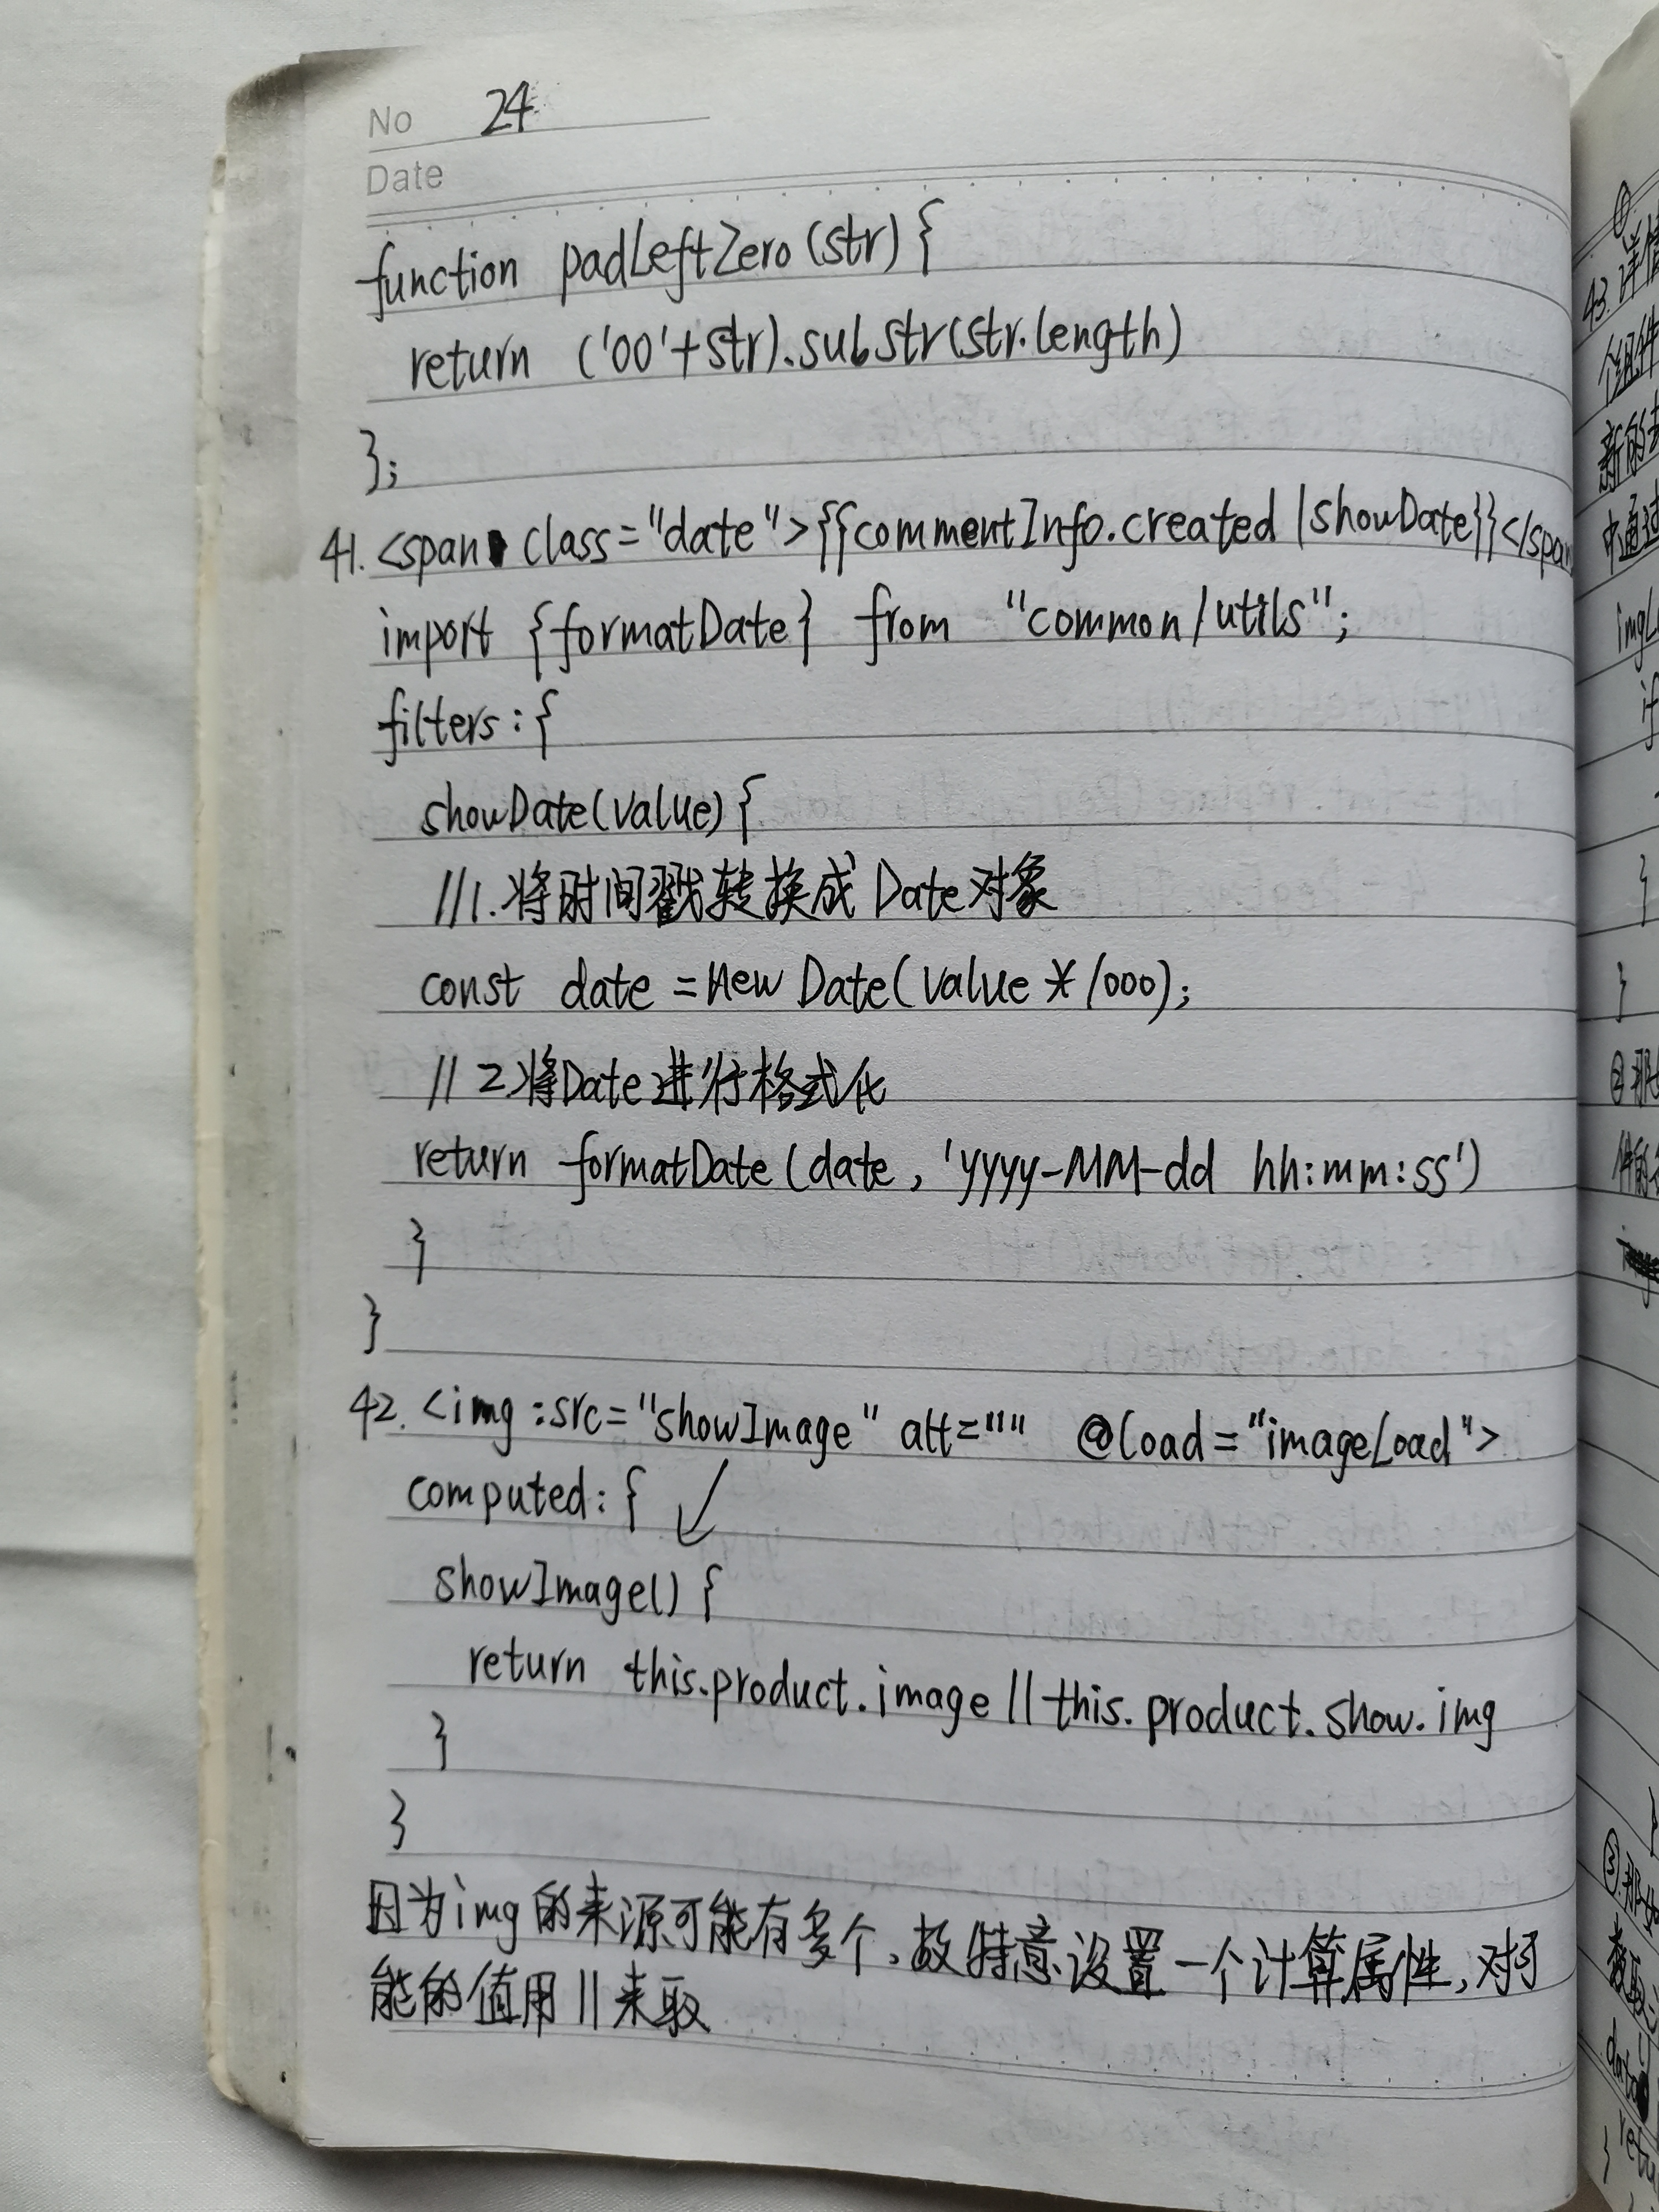 No 24
Date
function padLeftZero(str){
return ('00'+str).substr(str.length)
};
41. <span class="date">{{commentInfo.created |showDate}}</span
import {formatDate} from "common/utils";
filters:{
showDate(value){
//1.将时间戳转换成Date对象
const date = new Date(value * 1000);
// 2.将Date进行格式化
return formatDate(date, 'yyyy-MM-dd hh:mm:ss')
}
}
42. <img :src="showImage" alt="" @load="imageLoad">
computed:{
showImage() {
return this.product.image || this.product.show.img
}
}
因为img的来源可能有多个,故特意设置一个计算属性,对可
能的值用||来取
①
43.详情
个组件
新的
中通过
imgL
if
}
}
②那
件的
③那
data
retu
}